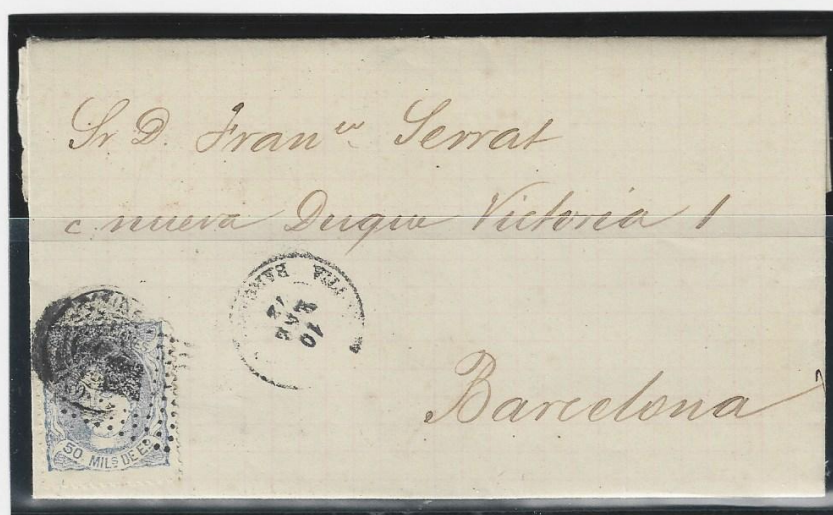 Sr D. Franco Serrat
c nueva Duque Victoria 1
10
MAR
72
Barcelona
50 MILS DE E